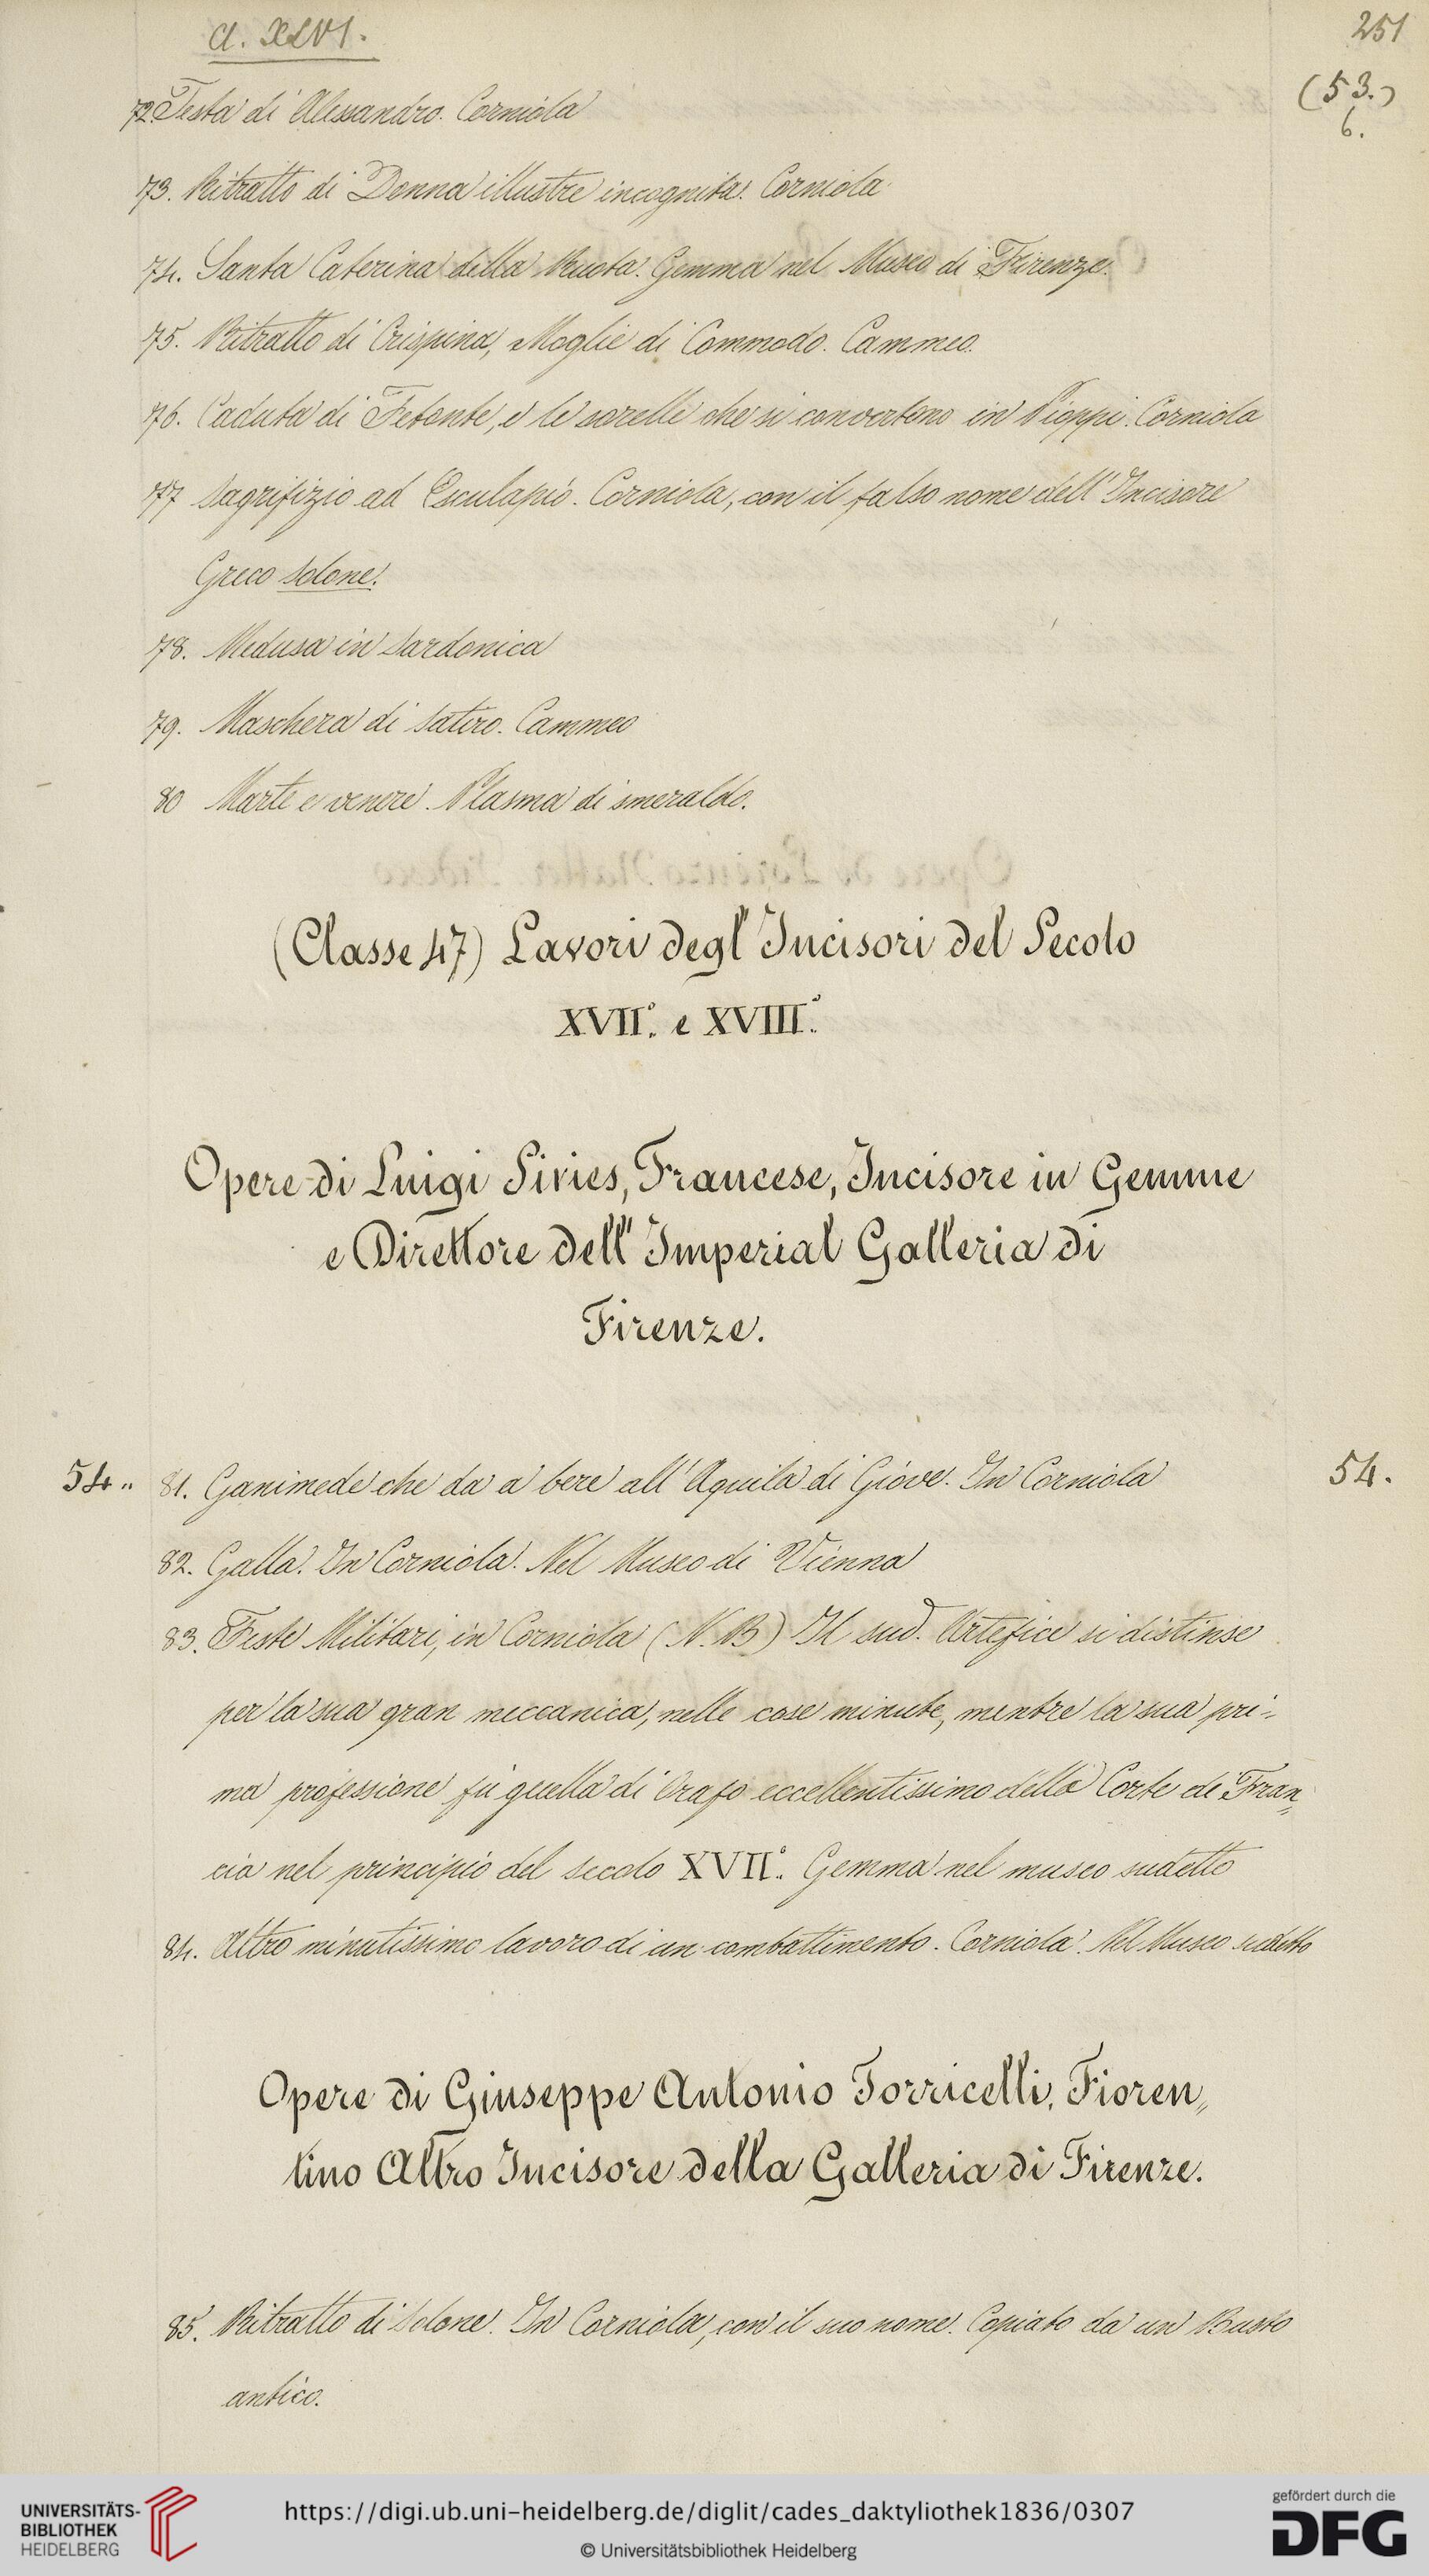 Cl. XLVI.
251
(53.)
6.
72. Testa di Alessandro. Corniola
73. Ritratto di Donna illustre incognita. Corniola
74. Santa Caterina della Ruota. Gemma nel Museo di Firenze.
75. Ritratto di Crispina, Moglie di Commodo. Cammeo.
76. Caduta di Fetonte, e le sorelle che si convertono in Pioppi. Corniola
77 Sagrifizio ad Esculapio. Corniola, con il falso nome dell'Incisore
Greco Solone.
78. Medusa in Sardonica
79. Maschera di Satiro. Cammeo
80 Marte e venere. Plasma di smeraldo.
(Classe 47) Lavori degl'Incisori del Secolo
XVII.° e XVIII.°
Opere di Luigi Siries, Francese, Incisore in Gemme
e Direttore dell'Imperial Galleria di
Firenze.
54.. 81. Ganimede che da a bere all'Aquila di Giove. In Corniola 54.
82. Galla. In Corniola. Nel Museo di Vienna
83. Feste Militari, in Corniola (N.B.) Il sud. Artefice si distinse
per la sua gran meccanica, nelle cose minute, mentre la sua pri-
ma professione fù quella di Orafo eccellentissimo della Corte di Fran„
cia nel principio del secolo XVII.° Gemma nel museo sudetto
84. Altro minutissimo lavoro di un combattimento. Corniola. Nel Museo sudetto
Opere di Giuseppe Antonio Torricelli, Fioren„
tino Altro Incisore della Galleria di Firenze.
85. Ritratto di Solone. In Corniola, con il suo nome. Copiato da un Busto
antico.
UNIVERSITÄTS-
BIBLIOTHEK
HEIDELBERG
https://digi.ub.uni-heidelberg.de/diglit/cades_daktyliothek1836/0307
© Universitätsbibliothek Heidelberg
gefördert durch die
DFG